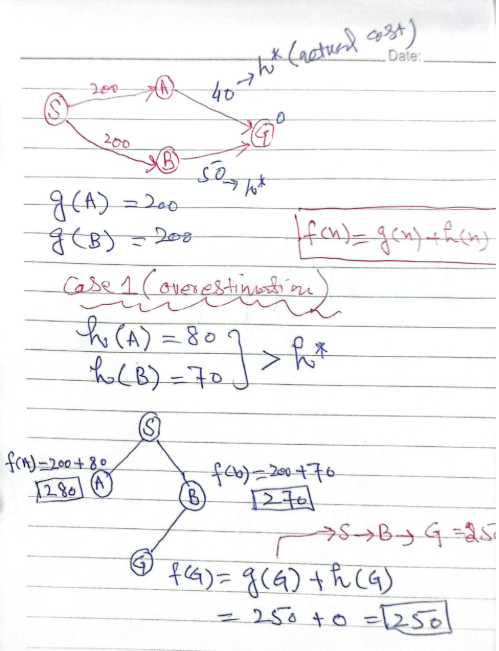 40 → h* (actual cost)
Date:
200
A
S
G 0
200
B
50 → h*
g(A) = 200
g(B) = 200
f(n) = g(n) + h(n)
Case 1 (overestimation)
h(A) = 80
h(B) = 70 } > h*
S
f(A) = 200 + 80
280 A
f(b) = 200 + 70
B 270
→ S → B → G = 250
G f(G) = g(G) + h(G)
= 250 + 0 = 250